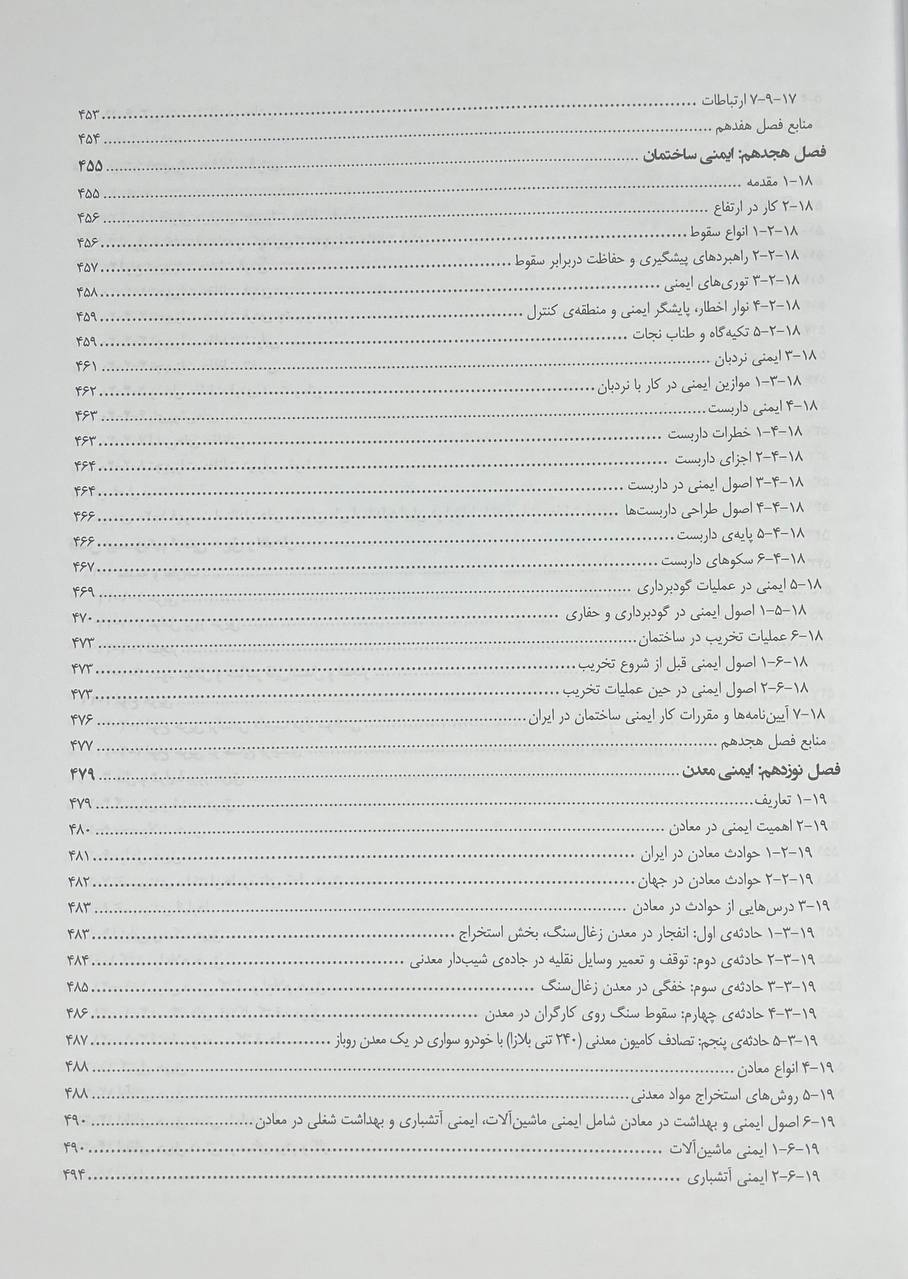 ۱۷-۹-۷ ارتباطات ... ۴۵۳
منابع فصل هفدهم ... ۴۵۴
فصل هجدهم: ایمنی ساختمان ... ۴۵۵
۱۸-۱ مقدمه ... ۴۵۵
۱۸-۲ کار در ارتفاع ... ۴۵۶
۱۸-۲-۱ انواع سقوط ... ۴۵۶
۱۸-۲-۲ راهبردهای پیشگیری و حفاظت دربرابر سقوط ... ۴۵۷
۱۸-۲-۳ توری‌های ایمنی ... ۴۵۸
۱۸-۲-۴ نوار اخطار، پایشگر ایمنی و منطقه‌ی کنترل ... ۴۵۹
۱۸-۲-۵ تکیه‌گاه و طناب نجات ... ۴۵۹
۱۸-۳ ایمنی نردبان ... ۴۶۱
۱۸-۳-۱ موازین ایمنی در کار با نردبان ... ۴۶۲
۱۸-۴ ایمنی داربست ... ۴۶۳
۱۸-۴-۱ خطرات داربست ... ۴۶۳
۱۸-۴-۲ اجزای داربست ... ۴۶۴
۱۸-۴-۳ اصول ایمنی در داربست ... ۴۶۴
۱۸-۴-۴ اصول طراحی داربست‌ها ... ۴۶۶
۱۸-۴-۵ پایه‌ی داربست ... ۴۶۶
۱۸-۴-۶ سکوهای داربست ... ۴۶۷
۱۸-۵ ایمنی در عملیات گودبرداری ... ۴۶۹
۱۸-۵-۱ اصول ایمنی در گودبرداری و حفاری ... ۴۷۰
۱۸-۶ عملیات تخریب در ساختمان ... ۴۷۳
۱۸-۶-۱ اصول ایمنی قبل از شروع تخریب ... ۴۷۳
۱۸-۶-۲ اصول ایمنی در حین عملیات تخریب ... ۴۷۳
۱۸-۷ آیین‌نامه‌ها و مقررات کار ایمنی ساختمان در ایران ... ۴۷۶
منابع فصل هجدهم ... ۴۷۷
فصل نوزدهم: ایمنی معدن ... ۴۷۹
۱۹-۱ تعاریف ... ۴۷۹
۱۹-۲ اهمیت ایمنی در معادن ... ۴۸۰
۱۹-۲-۱ حوادث معادن در ایران ... ۴۸۱
۱۹-۲-۲ حوادث معادن در جهان ... ۴۸۲
۱۹-۳ درس‌هایی از حوادث در معادن ... ۴۸۳
۱۹-۳-۱ حادثه‌ی اول: انفجار در معدن زغال‌سنگ، بخش استخراج ... ۴۸۳
۱۹-۳-۲ حادثه‌ی دوم: توقف و تعمیر وسایل نقلیه در جاده‌ی شیب‌دار معدنی ... ۴۸۴
۱۹-۳-۳ حادثه‌ی سوم: خفگی در معدن زغال‌سنگ ... ۴۸۵
۱۹-۳-۴ حادثه‌ی چهارم: سقوط سنگ روی کارگران در معدن ... ۴۸۶
۱۹-۳-۵ حادثه‌ی پنجم: تصادف کامیون معدنی (۲۴۰ تنی بلازا) با خودرو سواری در یک معدن روباز ... ۴۸۷
۱۹-۴ انواع معادن ... ۴۸۸
۱۹-۵ روش‌های استخراج مواد معدنی ... ۴۸۸
۱۹-۶ اصول ایمنی و بهداشت در معادن شامل ایمنی ماشین‌آلات، ایمنی آتشباری و بهداشت شغلی در معادن ... ۴۹۰
۱۹-۶-۱ ایمنی ماشین‌آلات ... ۴۹۰
۱۹-۶-۲ ایمنی آتشباری ... ۴۹۴